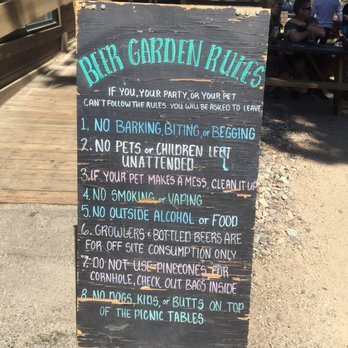 BEER GARDEN RULES
IF YOU, YOUR PARTY, OR YOUR PET
CAN'T FOLLOW THE RULES YOU WILL BE ASKED TO LEAVE
1. NO BARKING, BITING, or BEGGING
2. NO PETS or CHILDREN LEFT
UNATTENDED
3. IF YOUR PET MAKES A MESS, CLEAN IT UP
4. NO SMOKING or VAPING
5. NO OUTSIDE ALCOHOL or FOOD
6. GROWLERS & BOTTLED BEERS ARE
FOR OFF SITE CONSUMPTION ONLY
7. DO NOT USE PINECONES FOR
CORNHOLE, CHECK OUT BAGS INSIDE
8. NO DOGS, KIDS, or BUTTS ON TOP
OF THE PICNIC TABLES